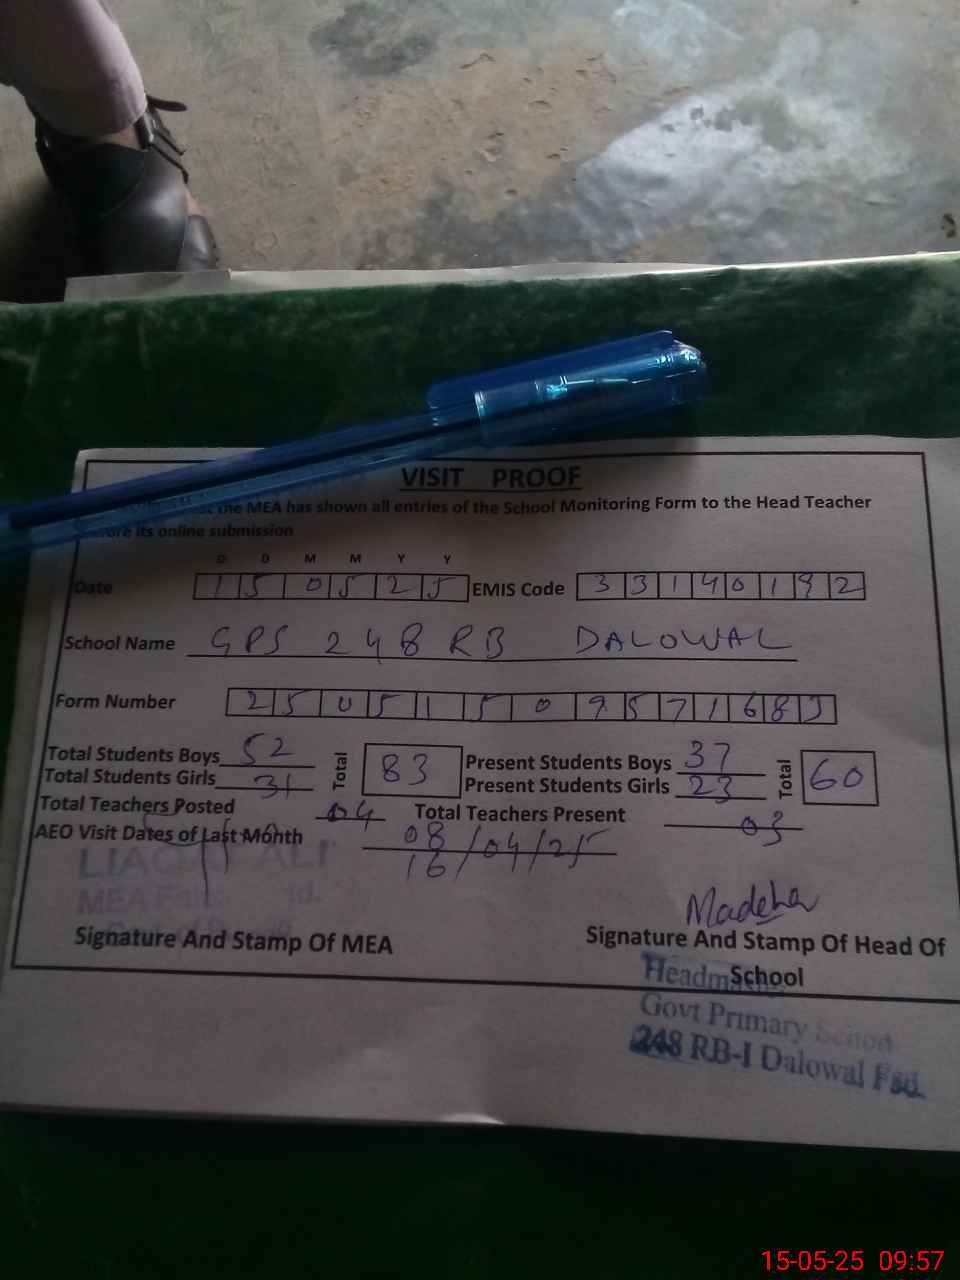 VISIT PROOF
the MEA has shown all entries of the School Monitoring Form to the Head Teacher
its online submission
D D M M Y Y
Date 15 05 25 EMIS Code 33140192
School Name GPS 248 RB DALOWAL
Form Number
Total Students Boys 52 Total 83 Present Students Boys 37 Total 60
Total Students Girls 31 Present Students Girls 23
Total Teachers Posted 04 Total Teachers Present 03
AEO Visit Dates of Last Month 08/04/25
16/
LIAQAT ALI
MEA
Madeha
Signature And Stamp Of MEA Signature And Stamp Of Head Of
School
Govt Primary School
248 RB-I Dalowal Fsd.
15-05-25 09:57